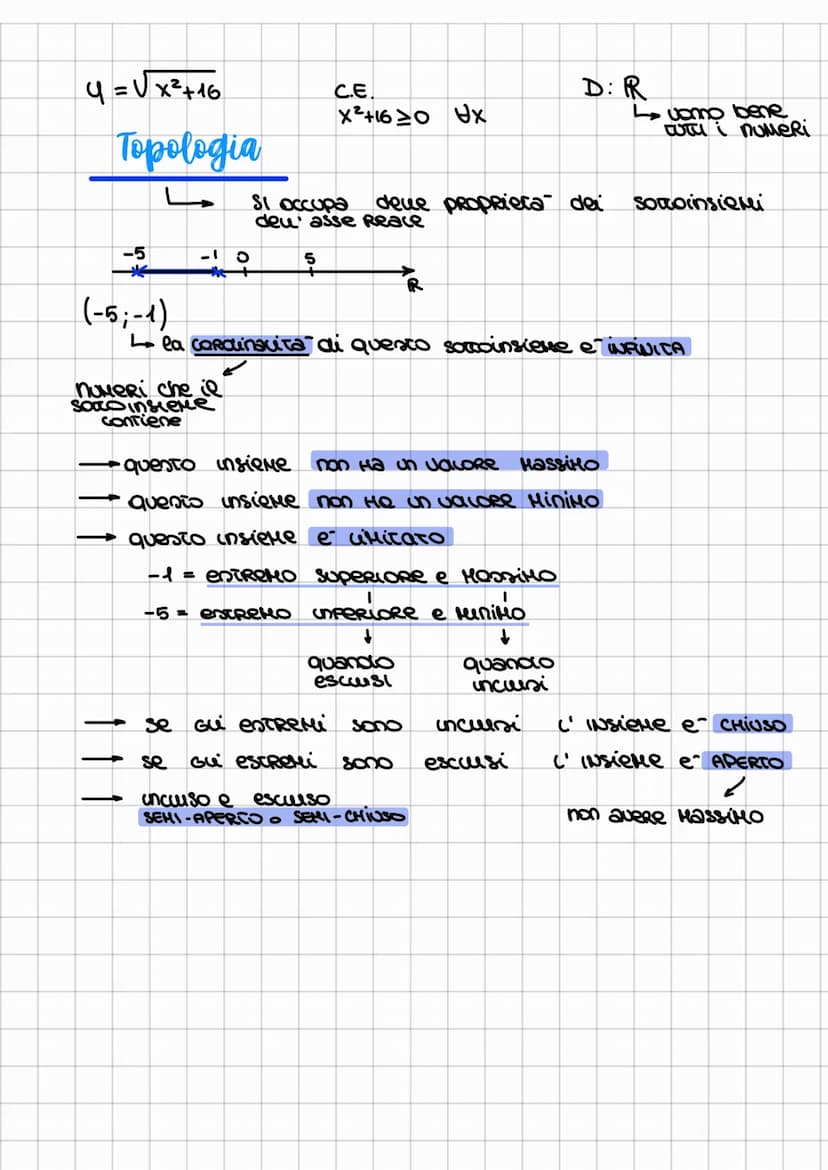 y = √x²+16 C.E. D: ℝ
x²+16 ≥ 0 ∀x ↳ vanno bene
tutti i numeri
Topologia
↳ si occupa delle proprietà dei sottoinsiemi
dell'asse reale
-5 -1 0 5
ℝ
(-5;-1)
↳ la cardinalità di questo sottoinsieme è INFINITA
numeri che il
sottoinsieme
contiene
→ questo insieme non ha un valore massimo
→ questo insieme non ha un valore minimo
→ questo insieme è limitato
-1 = estremo superiore e massimo
-5 = estremo inferiore e minimo
↓ ↓
quando quando
esclusi inclusi
→ se gli estremi sono inclusi l'insieme è CHIUSO
→ se gli estremi sono esclusi l'insieme è APERTO
→ incluso e escluso
SEMI-APERTO o SEMI-CHIUSO non avere massimo